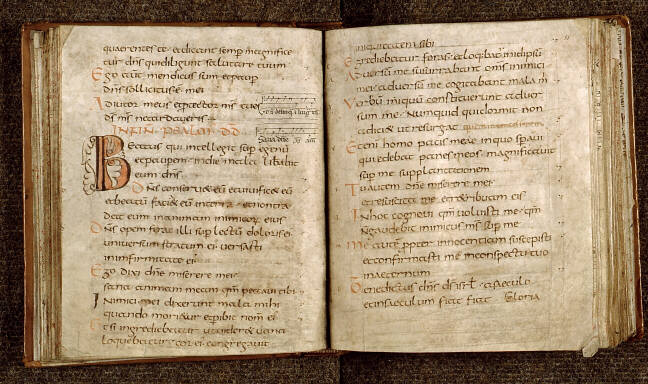 quaerentes te et dicant semp magnifice
tur dns qui diligunt salutare tuum
Ego autem mendicus sum et paup
dns sollicitus e mei
Adiutor meus et ptector ms tu es
ds ms ne tardaveris
IN FIN PSALM DD
Beatus qui intellegit sup egenu
et paupem in die mala liberabit
eum dns
Dns conservet eu et vivificet eu
et beatu faciat eu in terra et non tra
dat eum in animam inimicor eius
Dns opem ferat illi sup lectu doloris ei
universum stratum ei versasti
in infirmitate ei
Ego dixi dne miserere mei
sana animam meam qm peccavi tibi
Inimici mei dixerunt mala mihi
quando morietur et pibit nom ei
Et si ingrediebatur ut videret vana
loquebatur cor ei congregavit
iniquitatem sibi
Egrediebatur foras et loquebat in idipsu
Adversu me susurrabant oms inimici
mei adversu me cogitabant mala m
Verbu iniquu constituerunt adver
sum me Numquid qui dormit non
adiciet ut resurgat
Etenim homo pacis meae in quo speravi
qui edebat panes meos magnificavit
sup me supplantationem
Tu autem dne miserere mei
et resuscita me et retribuam eis
In hoc cognovi qm voluisti me qm
n gaudebit inimicus ms sup me
Me aute ppter innocentiam suscepisti
et confirmasti me in conspectu tuo
in aeternum
Benedictus dns ds isrl a saeculo
et in saeculum fiat fiat Gloria